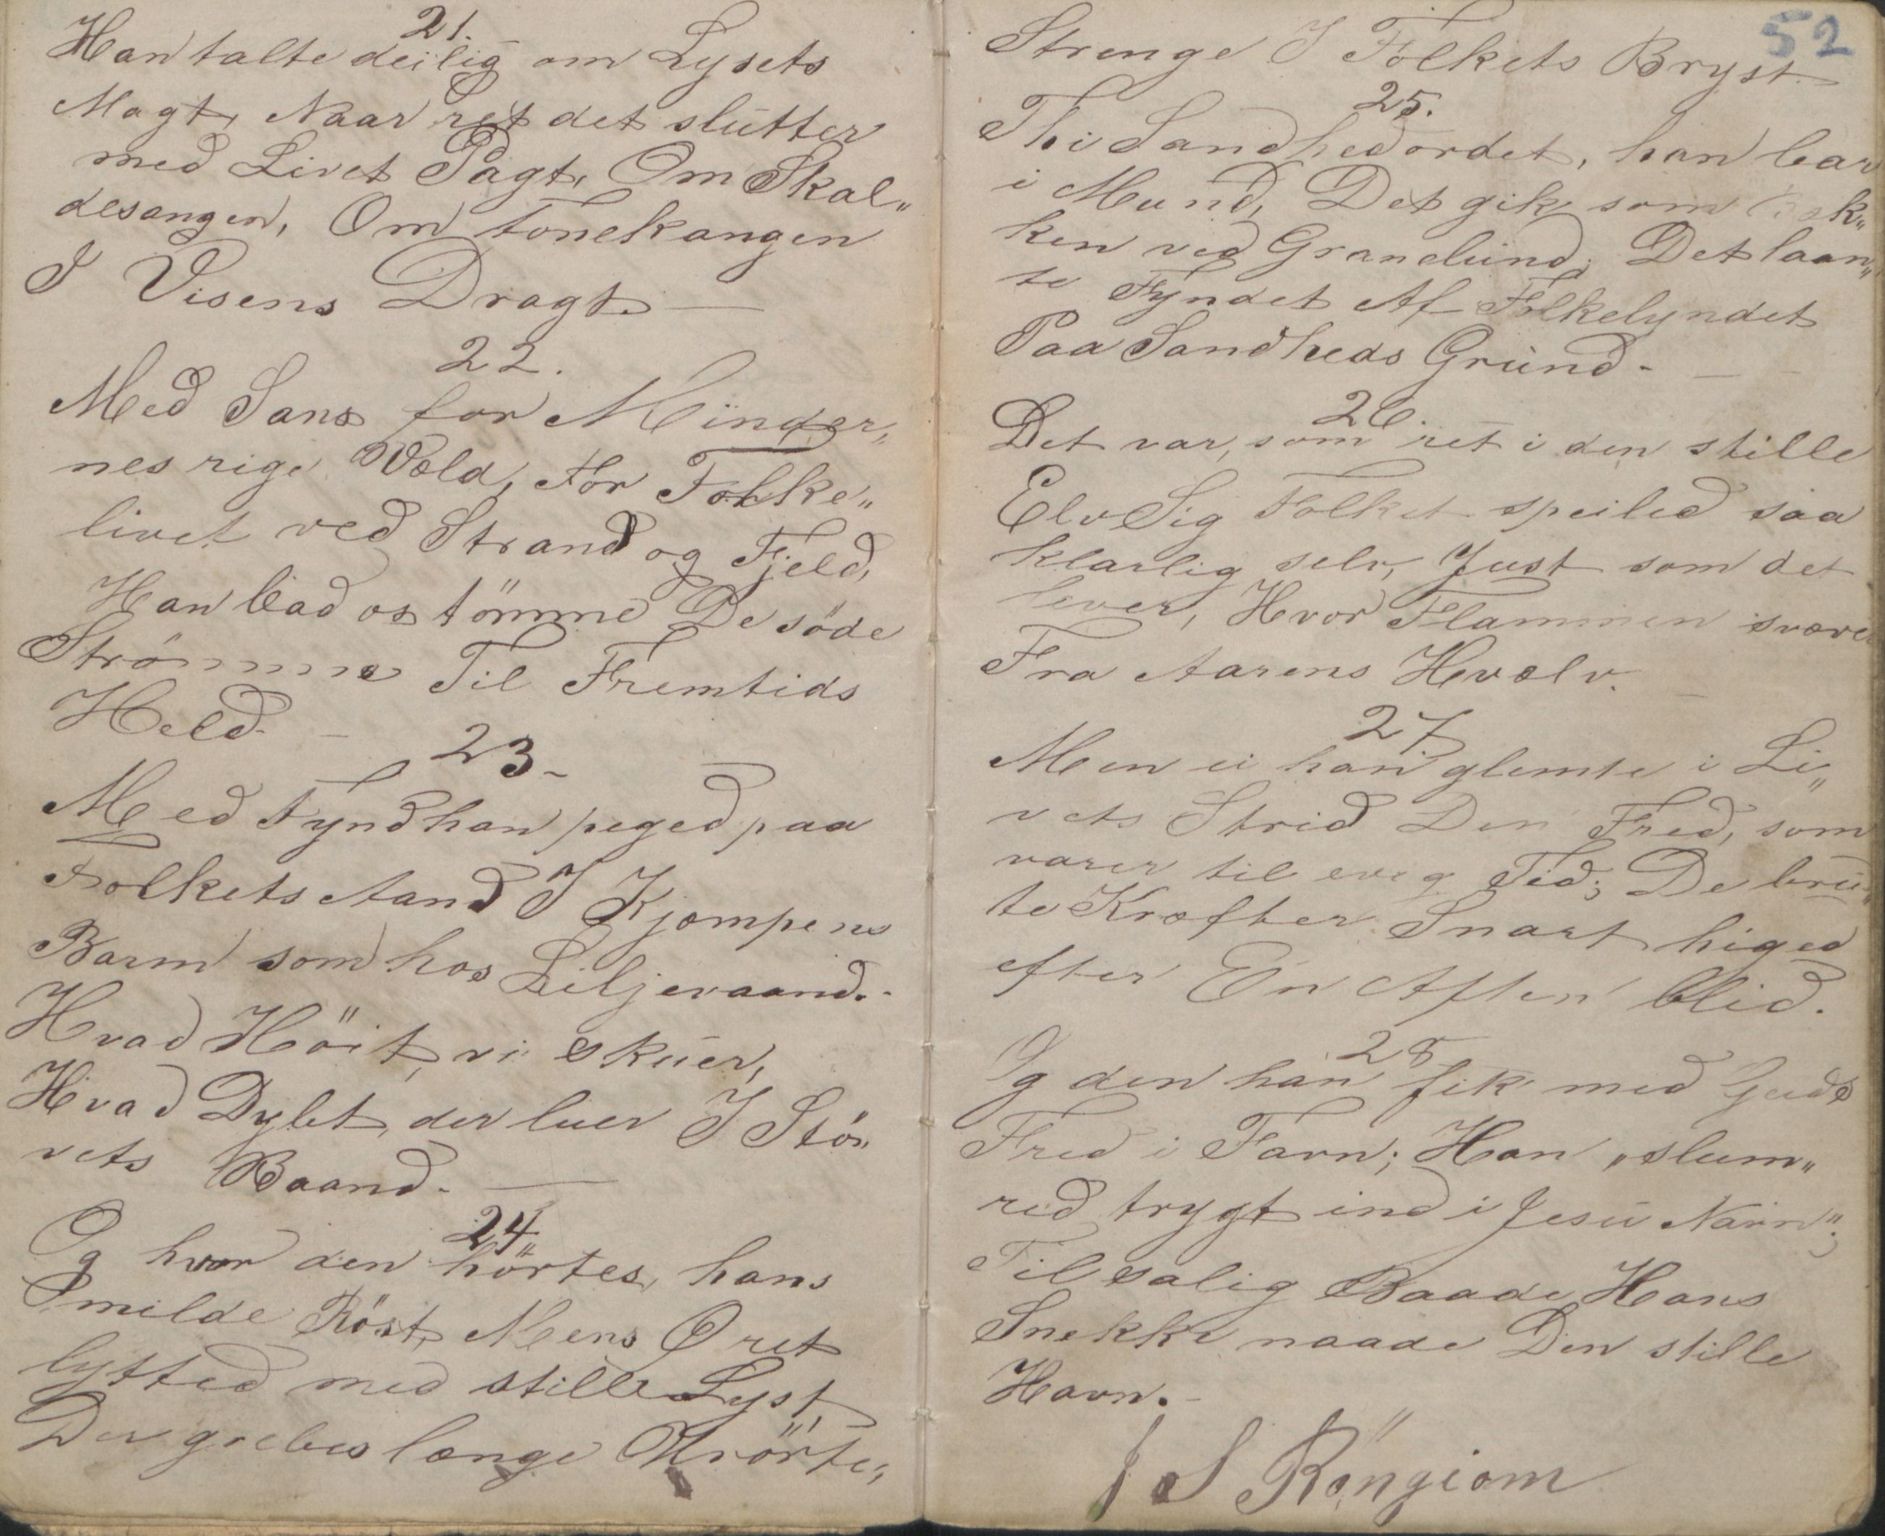 21.
Han talte deilig om Lysets
Magt, Naar ret det slutter
med Livet Pagt, Om Skal„
desangen, Om Tonekangen
I Visens Dragt. —
22.
Med Sans for Minder„
nes rige Væld, For Folke„
livet ved Strand og Fjeld,
Han bad os tömme De söde
Strömme Til Fremtids
Held. —
23 -
Med Fynd han peged paa
Folkets Aand I Kjæmpens
Barm som hos Liljevaand. -
Hvad Höit, vi skuer,
Hvad Dybt, der luer I Stö„
vets Baand. —
24
Og hvor den hörtes, hans
milde Röst, Mens Øret
lytted med stille Lyst,
Der grebes længe Urörte„
52
Strenge I Folkets Bryst.
25.
Thi Sandhedordet, han bar
i Mund, Det gik som
ken ved Granelund; Det laan„
te Fyndet Af Folkelyndet
Paa Sandheds Grund. —
26.
Det var, som ret i den stille
Elv Sig Folket speiled saa
klarlig selv, Just som det
lever, Hvor Flammen svæver
Fra Aarens Hvælv. —
27
Men ei han glemte i Li„
vets Strid Den Fred, som
varer til evig Tid; De bru„
te Kræfter Snart higed
efter En Aften blid.
28
Og den han fik med Guds
Fred i Favn; Han „slum„
red trygt ind i Jesu Navn";
Til salig Baade Hans
Snekke naade Den stille
Havn. -
J S Röngiom